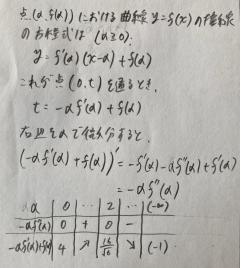 点(α, f(α))における曲線 y=f(x) の接線
の方程式は (α≧0).
y = f'(α)(x-α)+f(α)
これが点(0, t)を通るとき,
t = -αf'(α)+f(α)
右辺をαで微分すると,
(-αf'(α)+f(α))' = -f'(α)-αf''(α)+f'(α)
= -αf''(α)
α | 0 | … | 2 | … | (→∞)
-αf''(α) | 0 | + | 0 | -
-αf'(α)+f(α) | 4 | ↗ | 16/√6 | ↘ | (-1)